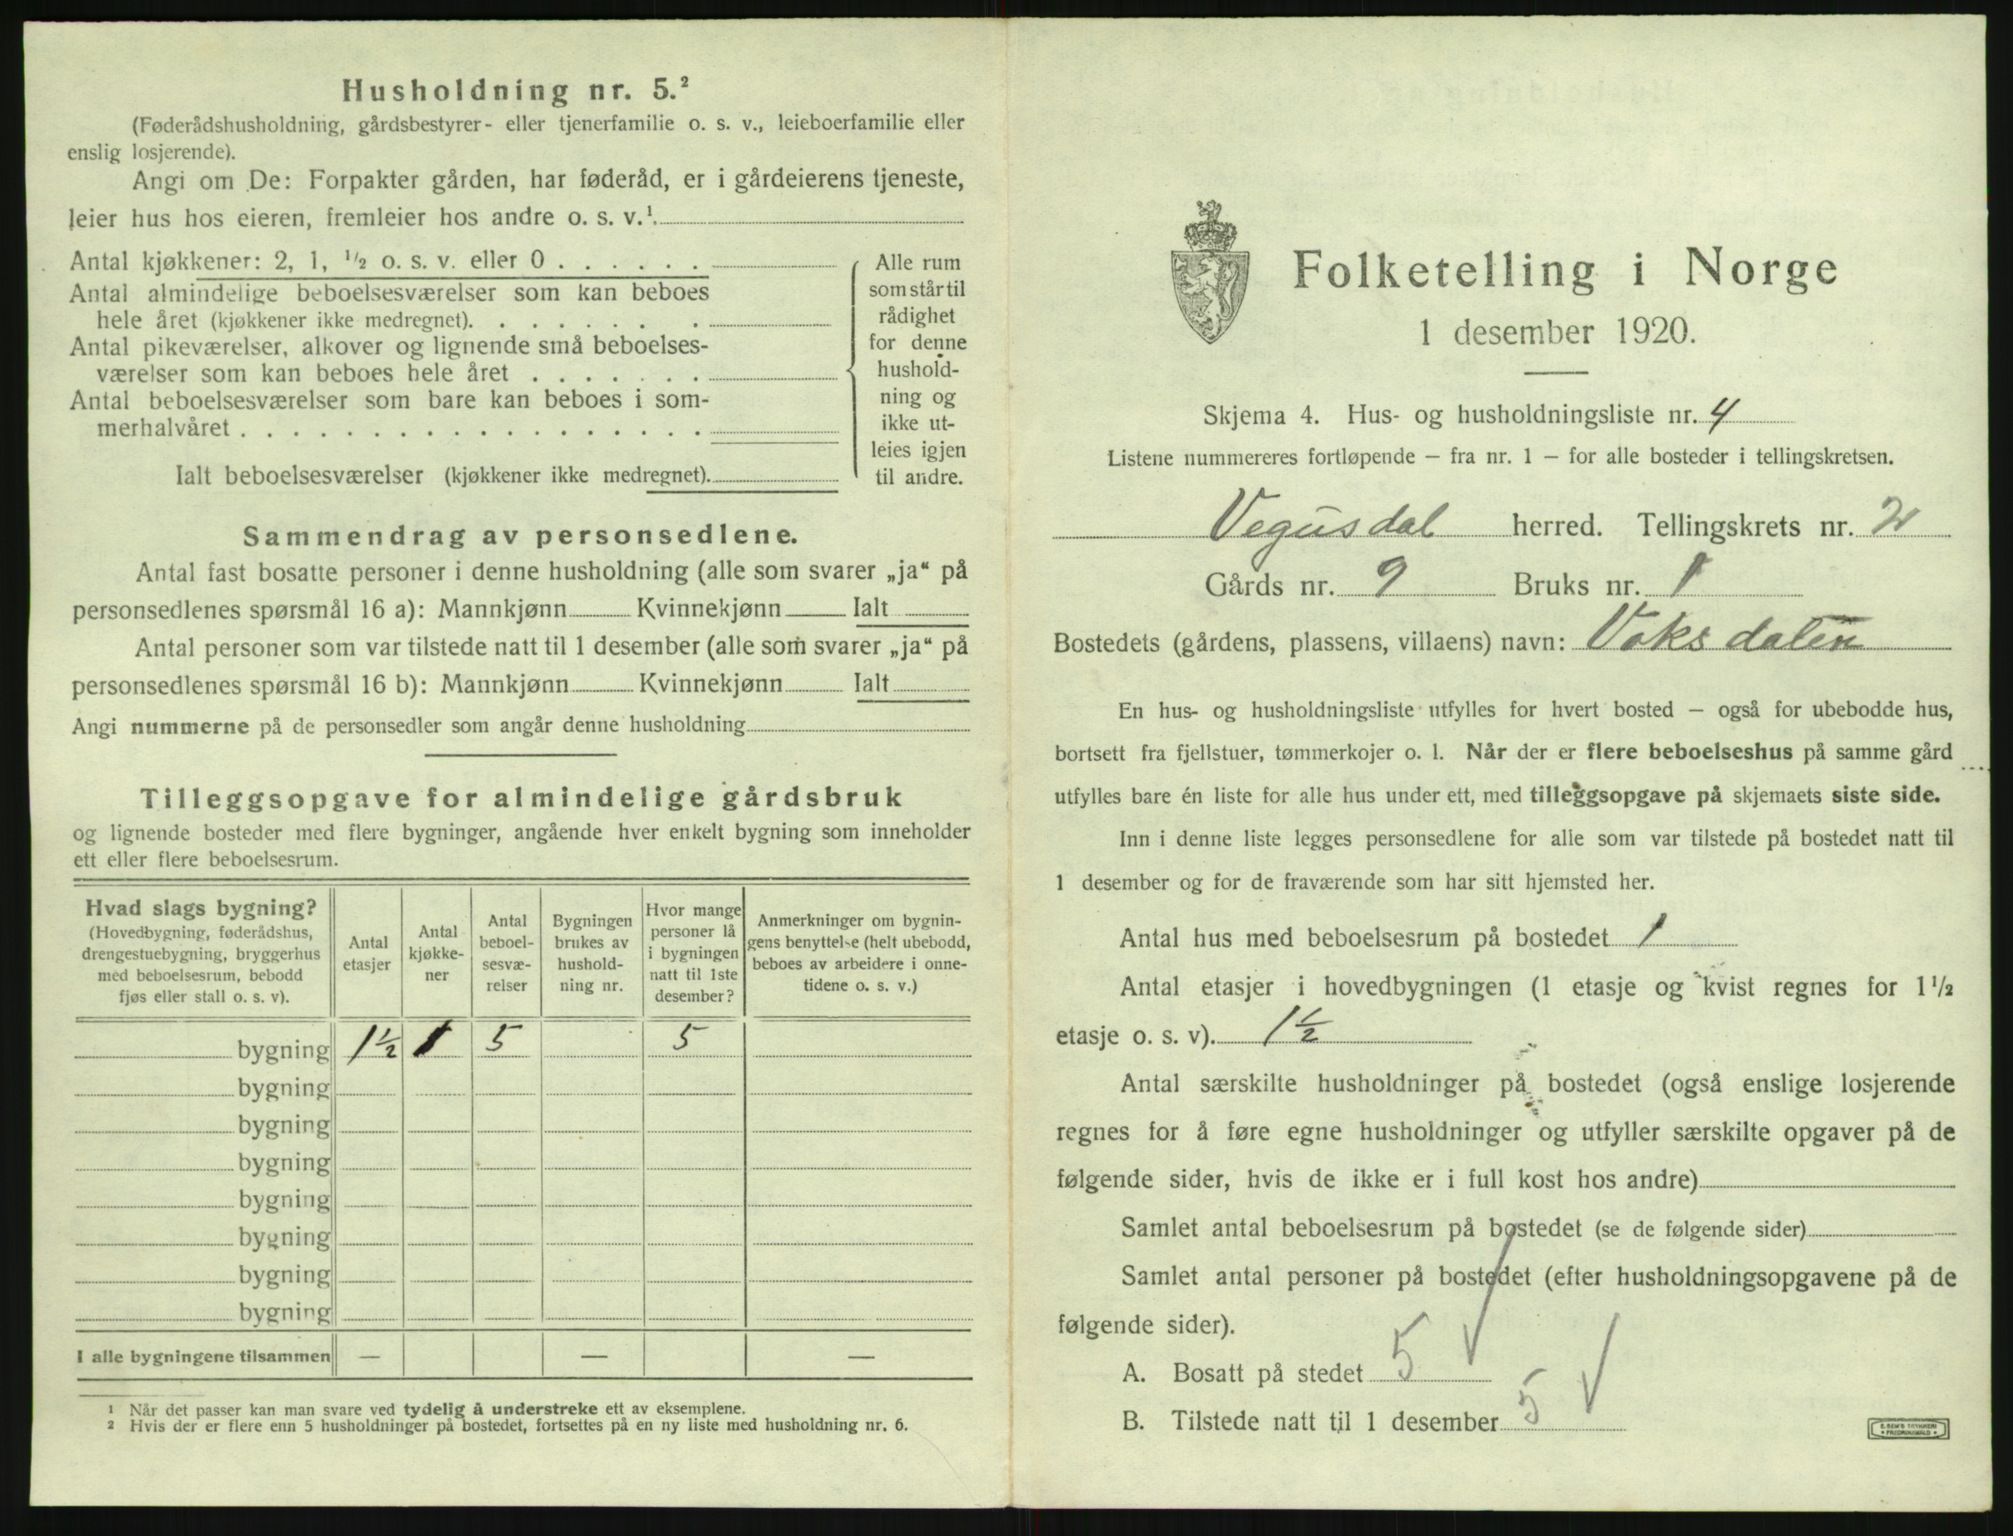 Husholdning nr. 5.²
(Føderådshusholdning, gårdsbestyrer- eller tjenerfamilie o. s. v., leieboerfamilie eller
enslig losjerende).
Angi om De: Forpakter gården, har føderåd, er i gårdeierens tjeneste,
leier hus hos eieren, fremleier hos andre o. s. v.¹
Antal kjøkkener: 2, 1, ½ o. s. v. eller 0 . . . . . .
Antal almindelige beboelsesværelser som kan beboes
hele året (kjøkkener ikke medregnet). . . . . . . . .
Antal pikeværelser, alkover og lignende små beboelses-
værelser som kan beboes hele året . . . . . . .
Antal beboelsesværelser som bare kan beboes i som-
merhalvåret . . . . . . . . . . . . . . . . . .
Ialt beboelsesværelser (kjøkkener ikke medregnet).
Alle rum
som står til
rådighet
for denne
hushold-
ning og
ikke ut-
leies igjen
til andre.
Sammendrag av personsedlene.
Antal fast bosatte personer i denne husholdning (alle som svarer „ja“ på
personsedlenes spørsmål 16 a): Mannkjønn Kvinnekjønn Ialt
Antal personer som var tilstede natt til 1 desember (alle som svarer „ja“ på
personsedlenes spørsmål 16 b): Mannkjønn Kvinnekjønn Ialt
Angi nummerne på de personsedler som angår denne husholdning
Tilleggsopgave for almindelige gårdsbruk
og lignende bosteder med flere bygninger, angående hver enkelt bygning som inneholder
ett eller flere beboelsesrum.
Hvad slags bygning?
(Hovedbygning, føderådshus,
drengestuebygning, bryggerhus
med beboelsesrum, bebodd
fjøs eller stall o. s. v).
Antal
etasjer
Antal
kjøkke-
ner
Antal
beboel-
sesvæ-
relser
Bygningen
brukes av
hushold-
ning nr.
Hvor mange
personer lå
i bygningen
natt til 1ste
desember?
Anmerkninger om bygnin-
gens benyttelse (helt ubebodd,
beboes av arbeidere i onne-
tidene o. s. v.)
bygning 1½ 1 5 5
bygning
bygning
bygning
bygning
bygning
bygning
bygning
I alle bygningene tilsammen — — —
¹ Når det passer kan man svare ved tydelig å understreke ett av eksemplene.
² Hvis der er flere enn 5 husholdninger på bostedet, fortsettes på en ny liste med husholdning nr. 6.
Folketelling i Norge
1 desember 1920.
Skjema 4. Hus- og husholdningsliste nr. 4
Listene nummereres fortløpende — fra nr. 1 — for alle bosteder i tellingskretsen.
Vegusdal herred. Tellingskrets nr. 2
Gårds nr. 9 Bruks nr. 1
Bostedets (gårdens, plassens, villaens) navn: Voksdalen
En hus- og husholdningsliste utfylles for hvert bosted — også for ubebodde hus,
bortsett fra fjellstuer, tømmerkojer o. l. Når der er flere beboelseshus på samme gård
utfylles bare én liste for alle hus under ett, med tilleggsopgave på skjemaets siste side.
Inn i denne liste legges personsedlene for alle som var tilstede på bostedet natt til
1 desember og for de fraværende som har sitt hjemsted her.
Antal hus med beboelsesrum på bostedet 1
Antal etasjer i hovedbygningen (1 etasje og kvist regnes for 1½
etasje o. s. v). 1½
Antal særskilte husholdninger på bostedet (også enslige losjerende
regnes for å føre egne husholdninger og utfyller særskilte opgaver på de
følgende sider, hvis de ikke er i full kost hos andre)
Samlet antal beboelsesrum på bostedet (se de følgende sider)
Samlet antal personer på bostedet (efter husholdningsopgavene på de
følgende sider).
A. Bosatt på stedet 5 √
B. Tilstede natt til 1 desember 5 √